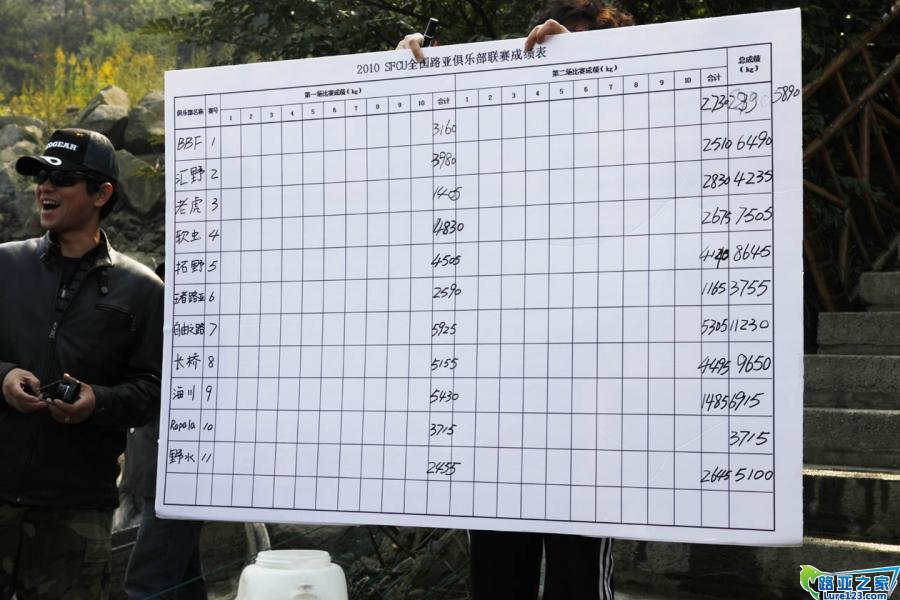 2010 SFCU全国路亚俱乐部联赛成绩表
俱乐部名称 赛号 第一场比赛成绩(kg) 第二场比赛成绩(kg) 总成绩(kg)
1 2 3 4 5 6 7 8 9 10 合计 1 2 3 4 5 6 7 8 9 10 合计
BBF 1 3160 2730 5890
汇野 2 3980 2510 6490
老虎 3 1405 2830 4235
软虫 4 4830 2675 7505
拓野 5 4505 8645
王者路亚 6 2590 1165 3755
自由之路 7 5925 5305 11230
长桥 8 5155 4495 9650
海川 9 5430 1485 6915
Rapala 10 3715 3715
野水 11 2455 2645 5100
OGEAR
路亚之家
Lure123.com